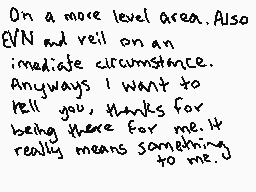 On a more level area. Also
EVN and veil on an
imediate circumstance.
Anyways I want to
tell you, thanks for
being there for me. It
really means something
to me.